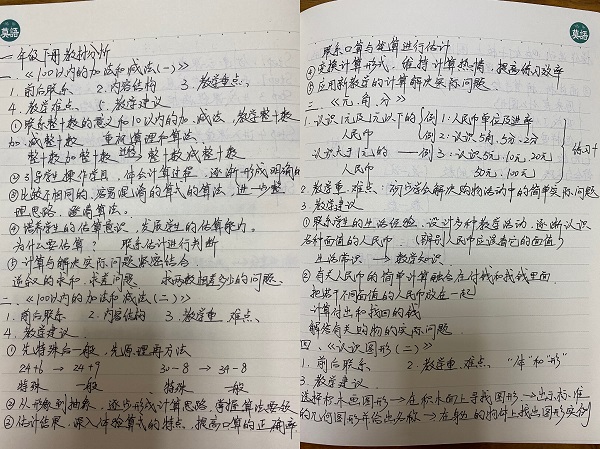 莫语
一年级下册教材分析
一、《100以内的加法和减法(一)》
1. 前后联系 2. 内容结构 3. 教学重点、
4. 教学难点 5. 教学建议
①联系整十数的意义和10以内的加、减法，教学整十数
加、减整十数 重视算理和算法
整十数加整十数 迁移 整十数减整十数
②引导学生操作学具，体会计算过程，逐渐形成明确的
③比较不相同的、容易混淆的算式的算法，进一步整
理思路，避免算法。
④培养学生的估算意识，发展学生的估算能力。
为什么要估算？ 联系估计进行判断
⑤计算与解决实际问题紧密结合
逆叙的求和、求差问题 求两数相差多少的问题、
二、《100以内的加法和减法(二)》
1. 前后联系 2. 内容结构 3. 教学重、难点、
4. 教学建议
①先特殊后一般，先算理再方法
24+6 → 24+9 30-8 → 34-8
特殊 一般 特殊 一般
②从形象到抽象，逐步形成计算思路，掌握算法要领
③估计结果，深入体验算式的特点，提高口算的正确率
莫语
联系口算与笔算进行估计
④变换计算形式，维持计算热情，提高练习效率
⑤应用新教学的计算解决实际问题
三、《元、角、分》
1. 认识1元及1元以下的 例1：人民币单位及进率
人民币 例2：认识5角、5分、2分
认识大于1元的 —— 例3：认识5元、10元、20元
人民币 50元、100元 练习十
2. 教学重、难点：初步学会解决购物活动中的简单实际问题
3. 教学建议
①联系学生的生活经验，设计多种教学活动，逐渐认识
各种面值的人民币、(辨别人民币应该看它的面值)
生活常识 → 教学知识
②有关人民币的简单计算融合在付钱和找钱里面
把若干不同面值的人民币放在一起
计算付出和找回的钱
解答有关购物的实际问题
四、《认识图形(二)》
1. 前后联系 2. 教学重、难点、 “体”和“形”
3. 教学建议
选择积木画图形 → 在积木面上寻找图形 → 出示标准
的几何图形并给出名称 → 在身边的物体上找出图形实例